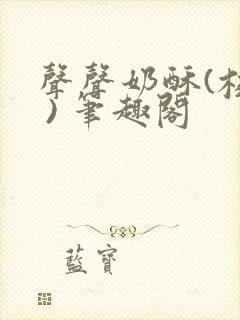 聲聲奶酥(校
)筆趣閣
藍寶